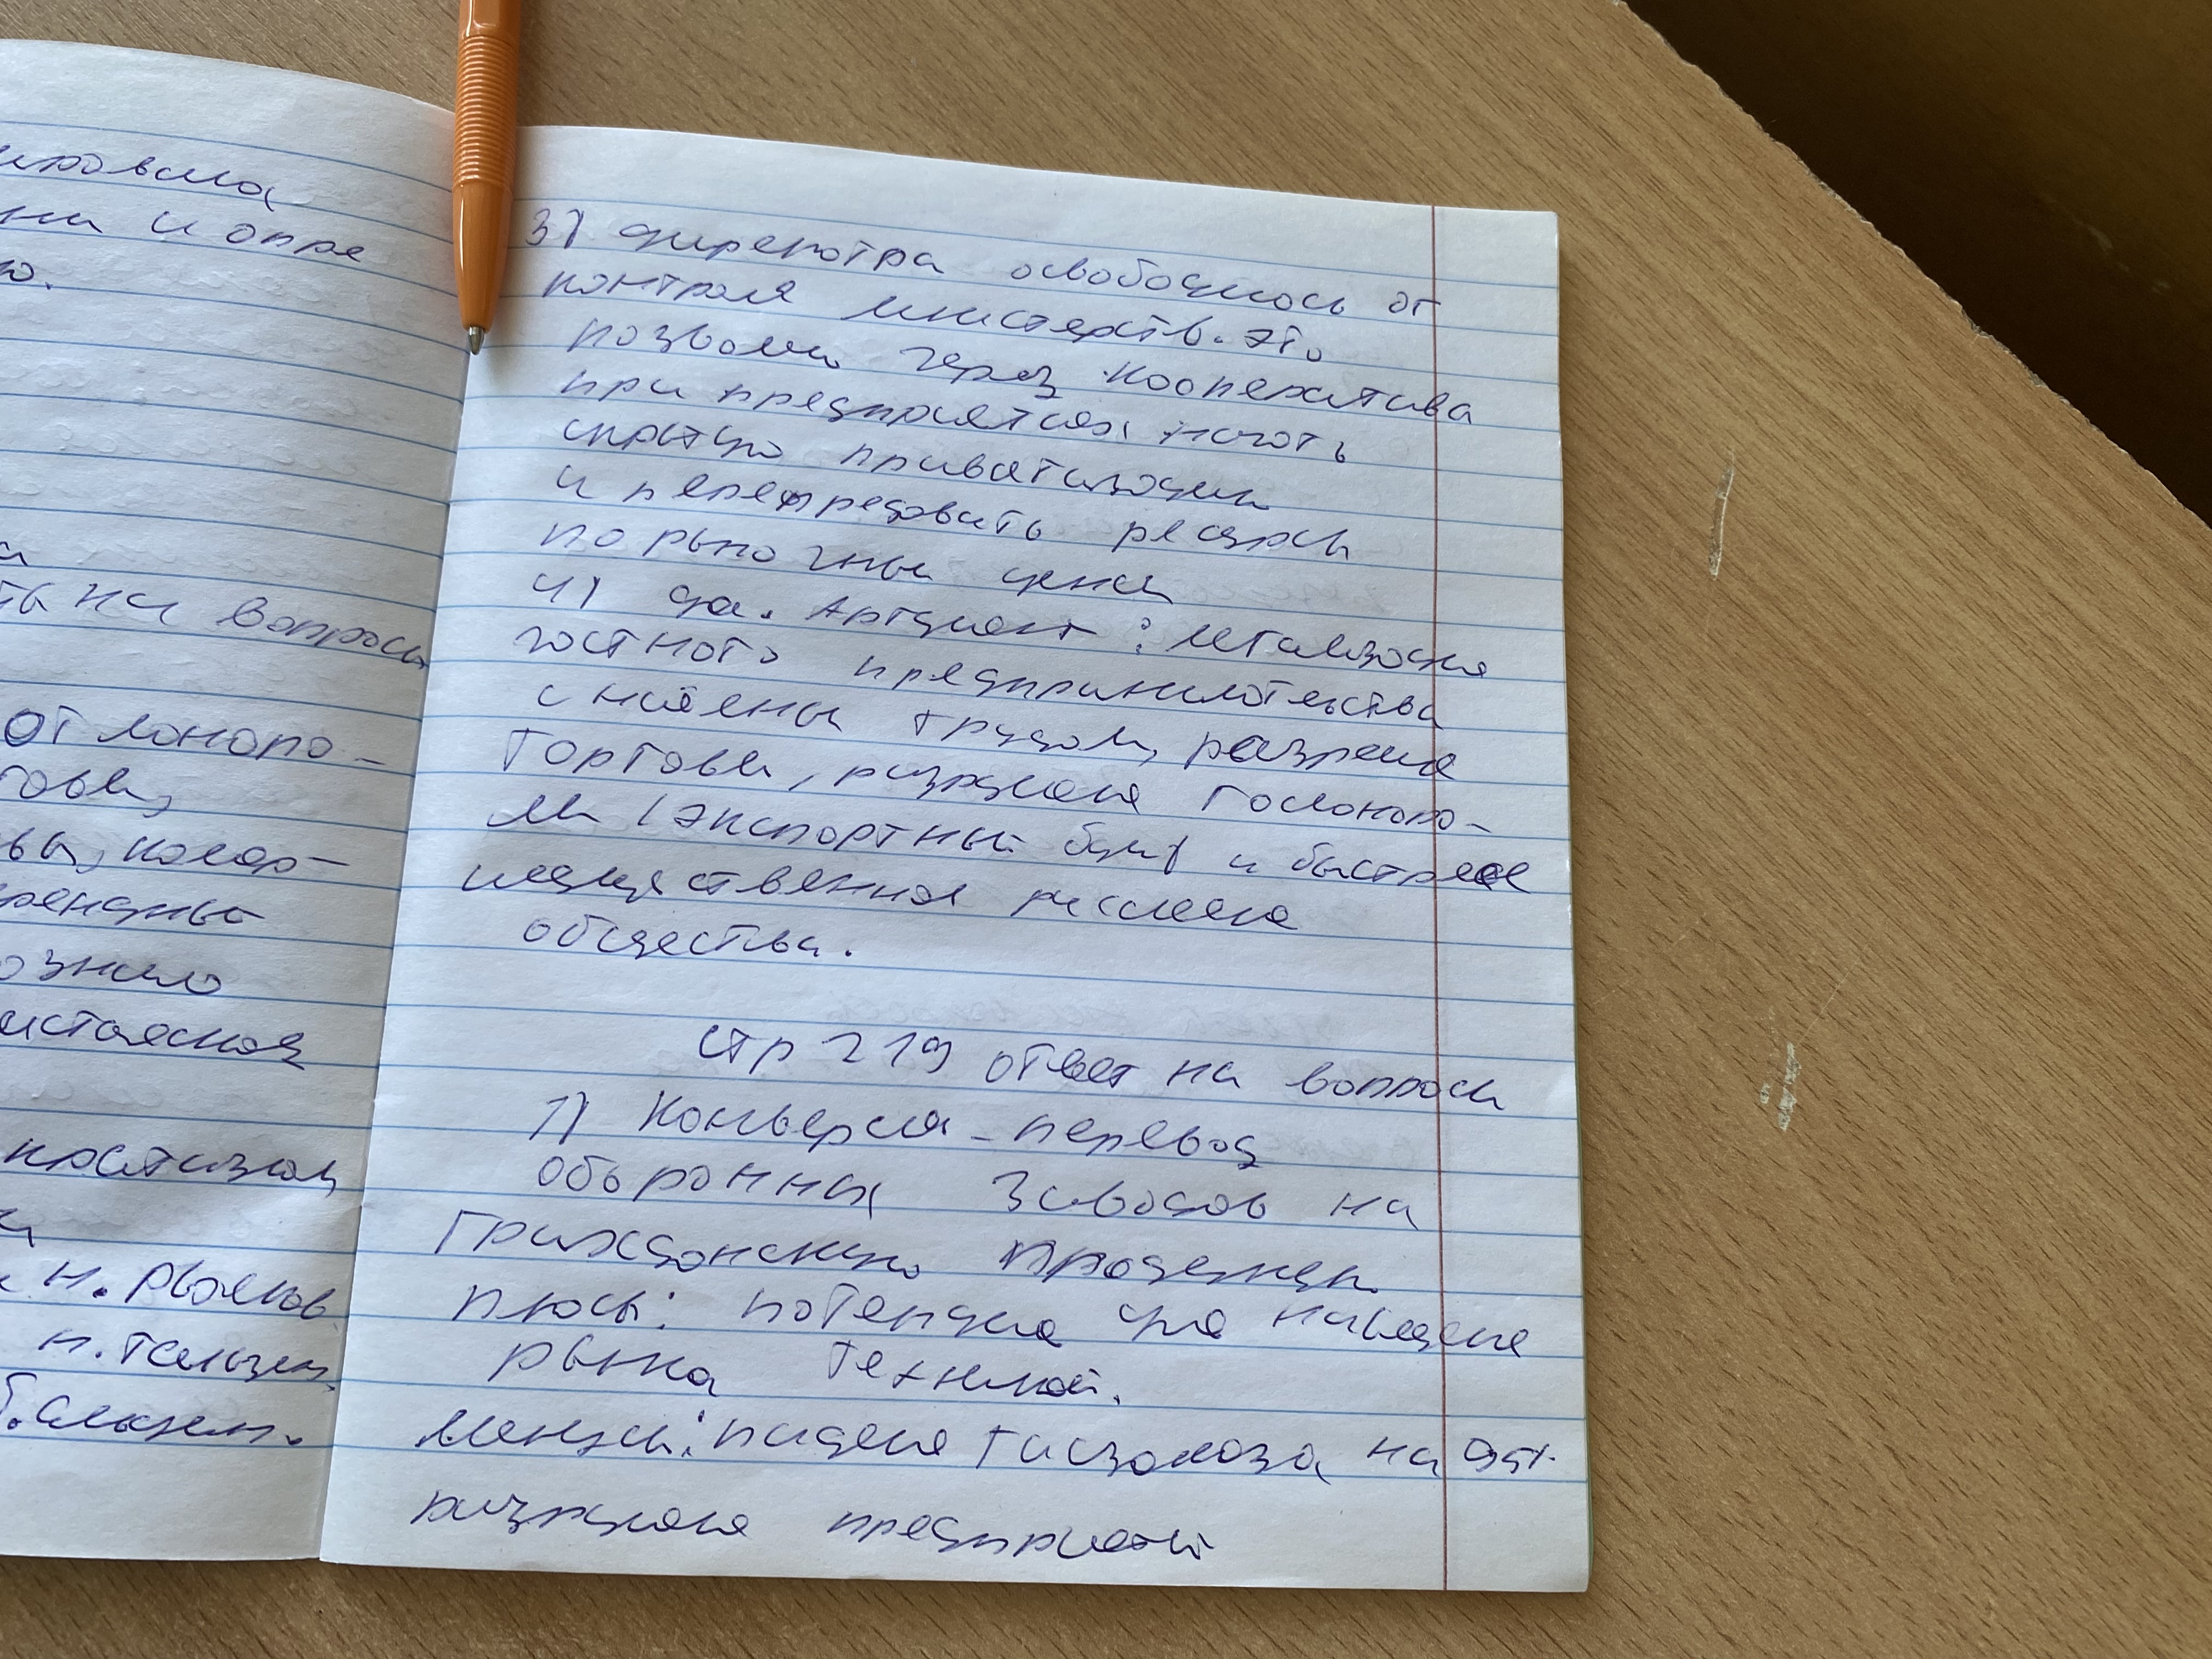 ировала
ни и опре
ю.
ть на вопросы
от монопо-
говли,
вы, коопер-
арендные
озникло
Н. Рыжков.
Н. Талызин.
3) директора освободилось от
контроля министерств. это
позволи через кооператива
при предприятиях начать
скрытую приватизацию
и перепродавать ресурсы
по рыночным ценам
4) да. Аргумент: легализация
частного предпринимательства
с наёмным трудом, разрешение
торговли, разрушение госмонопо-
лии (экспортный бум) и быстрое
имущественное расслоение
общества.
стр 219 ответ на вопросы
1) Конверсия - перевод
оборонных заводов на
гражданскую продукцию
плюсы: потенциал для насыщения
рынка техникой.
Минусы: падение госзаказа на
разрушение предприятий